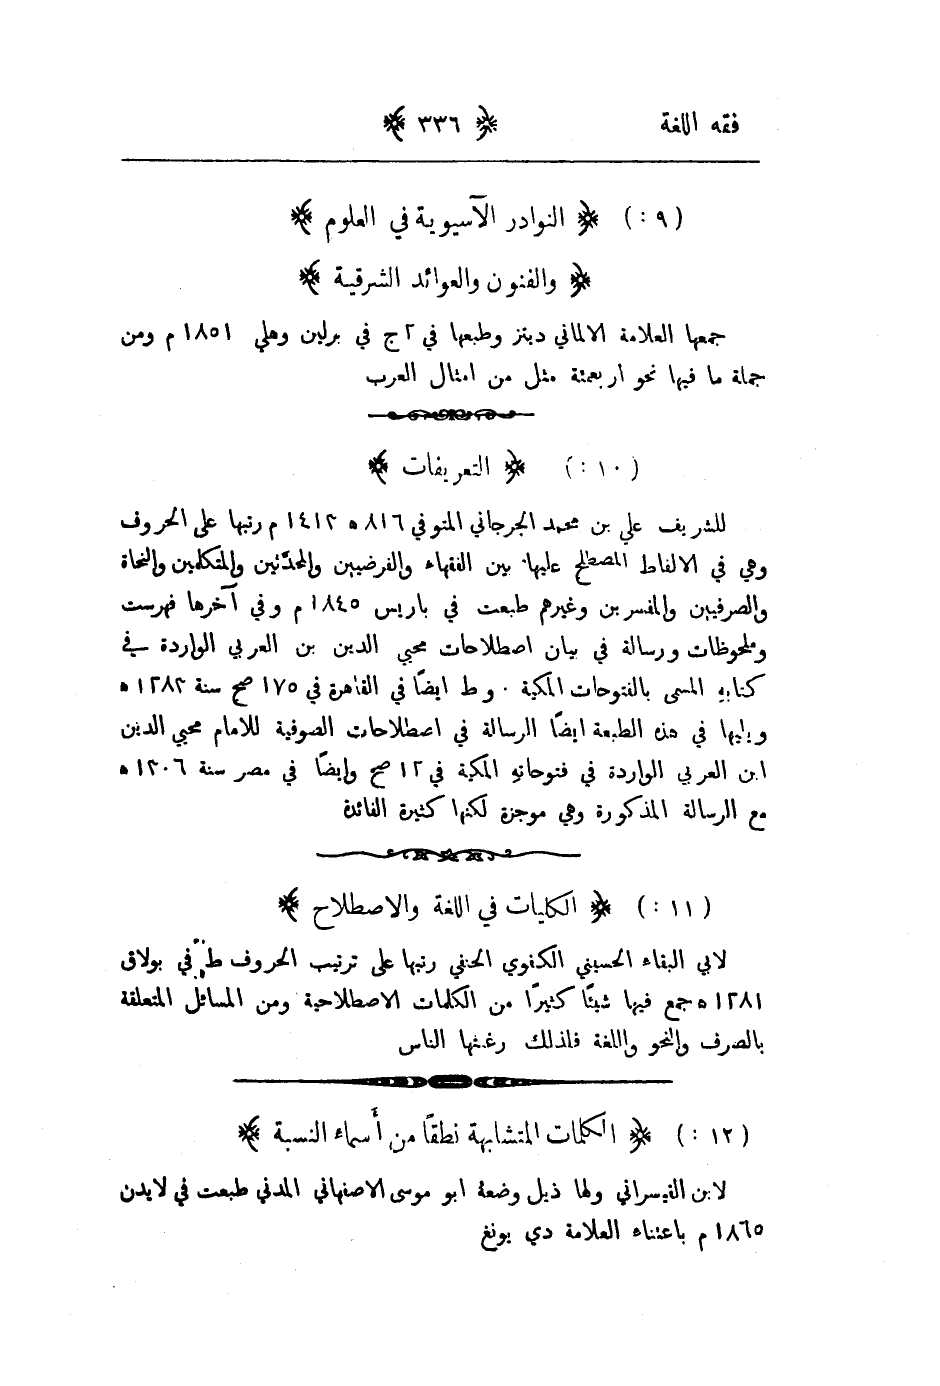 فقه اللغة ﴿ ٣٣٦ ﴾
( ٩ : ) ﴿ النوادر الآسيوية في العلوم ﴾
﴿ والفنون والعوائد الشرقية ﴾
جمعها العلامة الالماني ديتز وطبعها في ٢ ج في برلين وهلي ١٨٥١ م ومن
جملة ما فيها نحو اربعمئة مثل من امثال العرب
( ١٠ : ) ﴿ التعريفات ﴾
للشريف علي بن محمد الجرجاني المتوفي ٨١٦ ه ١٤١٣ م رتبها على الحروف
وهي في الالفاظ المصطلح عليها بين الفقهاء والفرضيين والمحدّثين والمتكلمين والنحاة
والصرفيين والمفسرين وغيرهم طبعت في باريس ١٨٤٥ م وفي آخرها فهرست
وملحوظات ورسالة في بيان اصطلاحات محيي الدين بن العربي الواردة في
كتابهِ المسمى بالفتوحات المكية . وط ايضًا في القاهرة في ١٧٥ صح سنة ١٢٨٣ ه
ويليها في هذه الطبعة ايضًا الرسالة في اصطلاحات الصوفية للامام محيي الدين
ابن العربي الواردة في فتوحاتهِ المكية في ١٢ صح وايضًا في مصر سنة ١٣٠٦ ه
مع الرسالة المذكورة وهي موجزة لكنها كثيرة الفائدة
( ١١ : ) ﴿ الكليات في اللغة والاصطلاح ﴾
لابي البقاء الحسيني الكفوي الحنفي رتبها على ترتيب الحروف ط في بولاق
١٢٨١ ه جمع فيها شيئًا كثيرًا من الكلمات الاصطلاحية ومن المسائل المتعلقة
بالصرف والنحو واللغة فلذلك رغبتها الناس
( ١٢ : ) ﴿ الكلمات المتشابهة نطقًا من أسماء النسبة ﴾
لابن القيسراني ولها ذيل وضعهُ ابو موسى الاصفهاني المدني طبعت في لايدن
١٨٦٥ م باعتناء العلامة دي يونغ